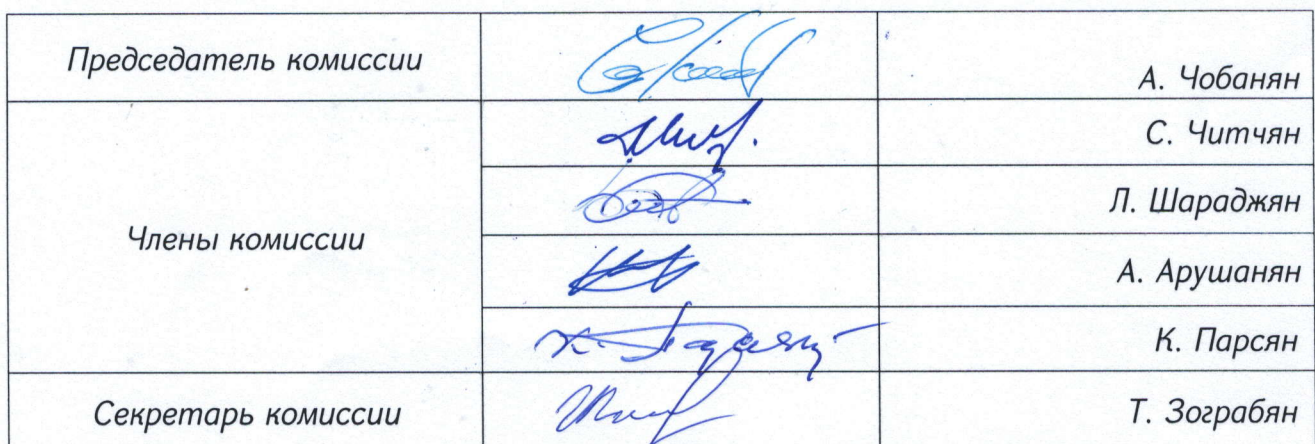 Председатель комиссии
А. Чобанян
Члены комиссии
С. Читчян
Л. Шараджян
А. Арушанян
К. Парсян
Секретарь комиссии
Т. Зограбян